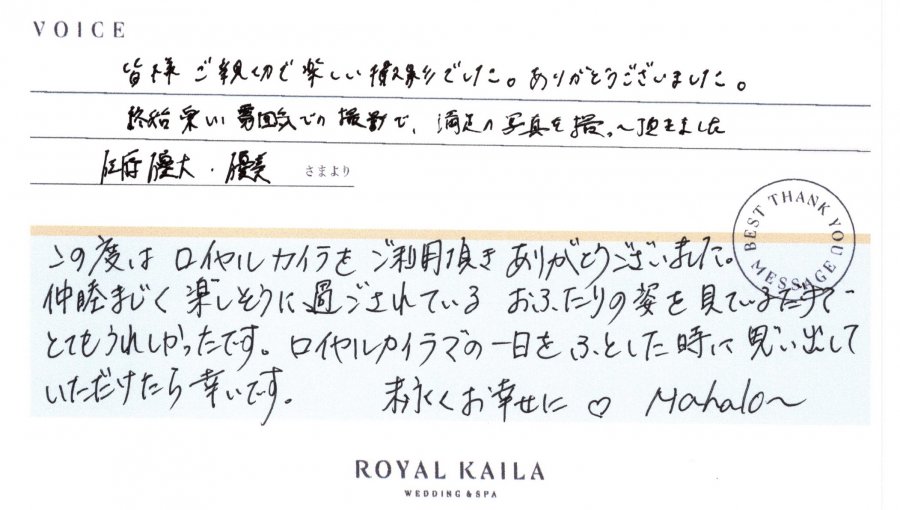 VOICE
皆様 ご親切で楽しい撮影でした。ありがとうございました。
終始楽しい雰囲気での撮影で、満足の写真を撮って頂きました
優大・優美 さまより
BEST THANK YOU MESSAGE
この度は ロイヤルカイラを ご利用頂き ありがとうございました。
仲睦まじく 楽しそうに 過ごされている おふたりの姿を 見ているだけで
とてもうれしかったです。ロイヤルカイラでの一日を ふとした時に 思い出して
いただけたら 幸いです。 末永く お幸せに ♡ Mahalo~
ROYAL KAILA
WEDDING & SPA